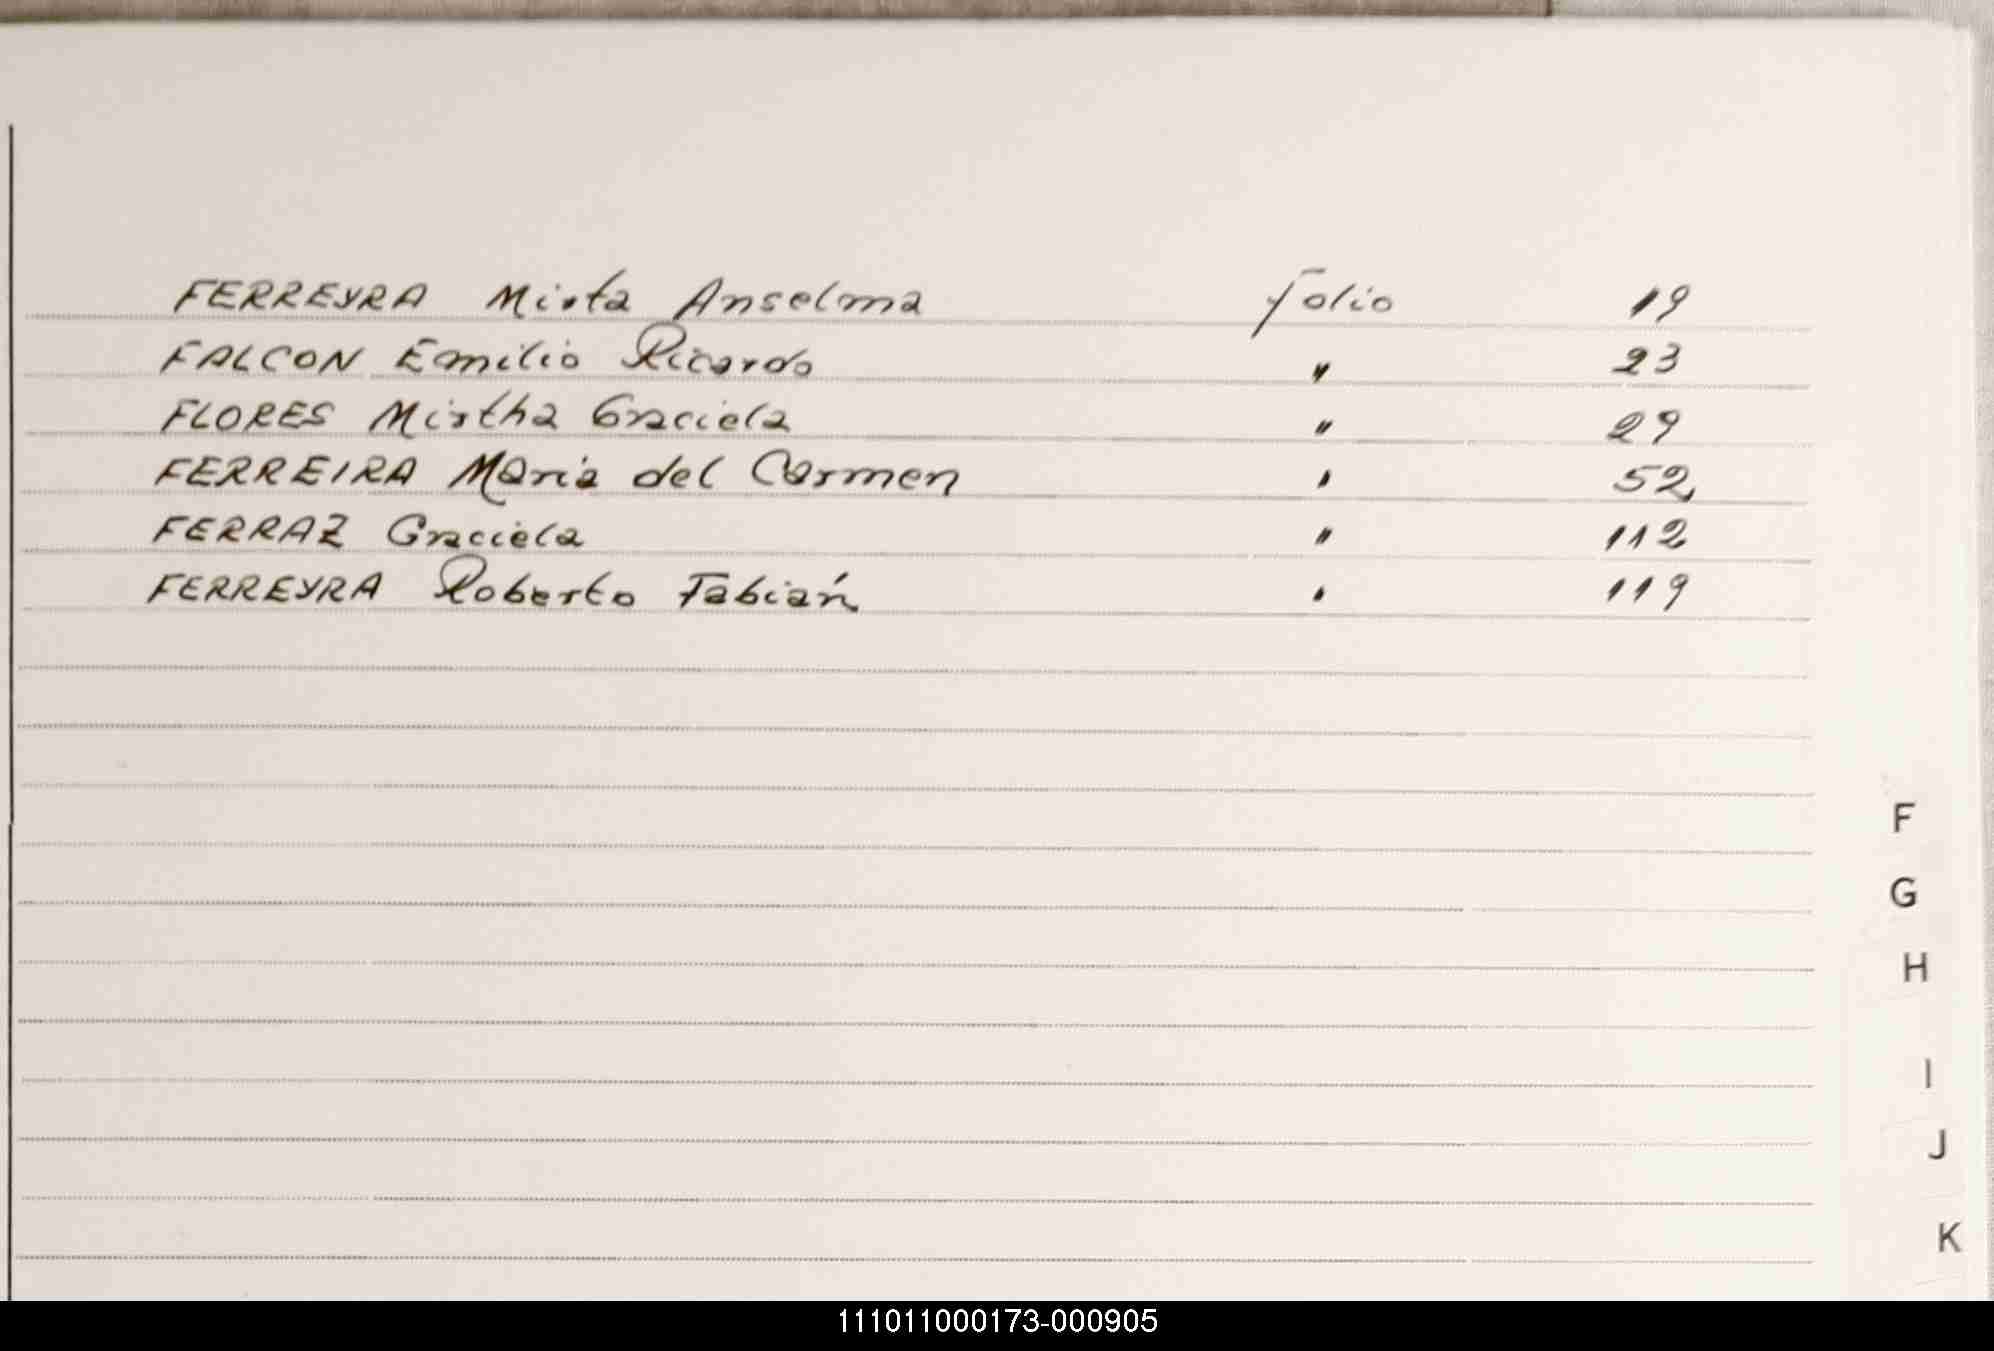 FERREYRA Mirta Anselma folio 19
FALCON Emilio Ricardo " 23
FLORES Mirtha Graciela " 29
FERREIRA Maria del Carmen " 52
FERRAZ Graciela " 112
FERREYRA Roberto Fabián " 119
F
G
H
I
J
K
111011000173-000905